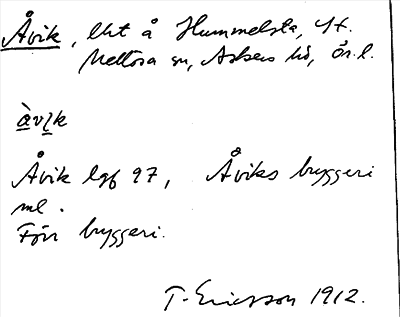 Åvik, lht å Hummelsta, St.
Mellösa sn, Askers hd, Ör.l.
àvı̲k
Åvik lgf 97, Åviks bryggeri
ml.
Förr bryggeri.
T. Ericsson 1912.